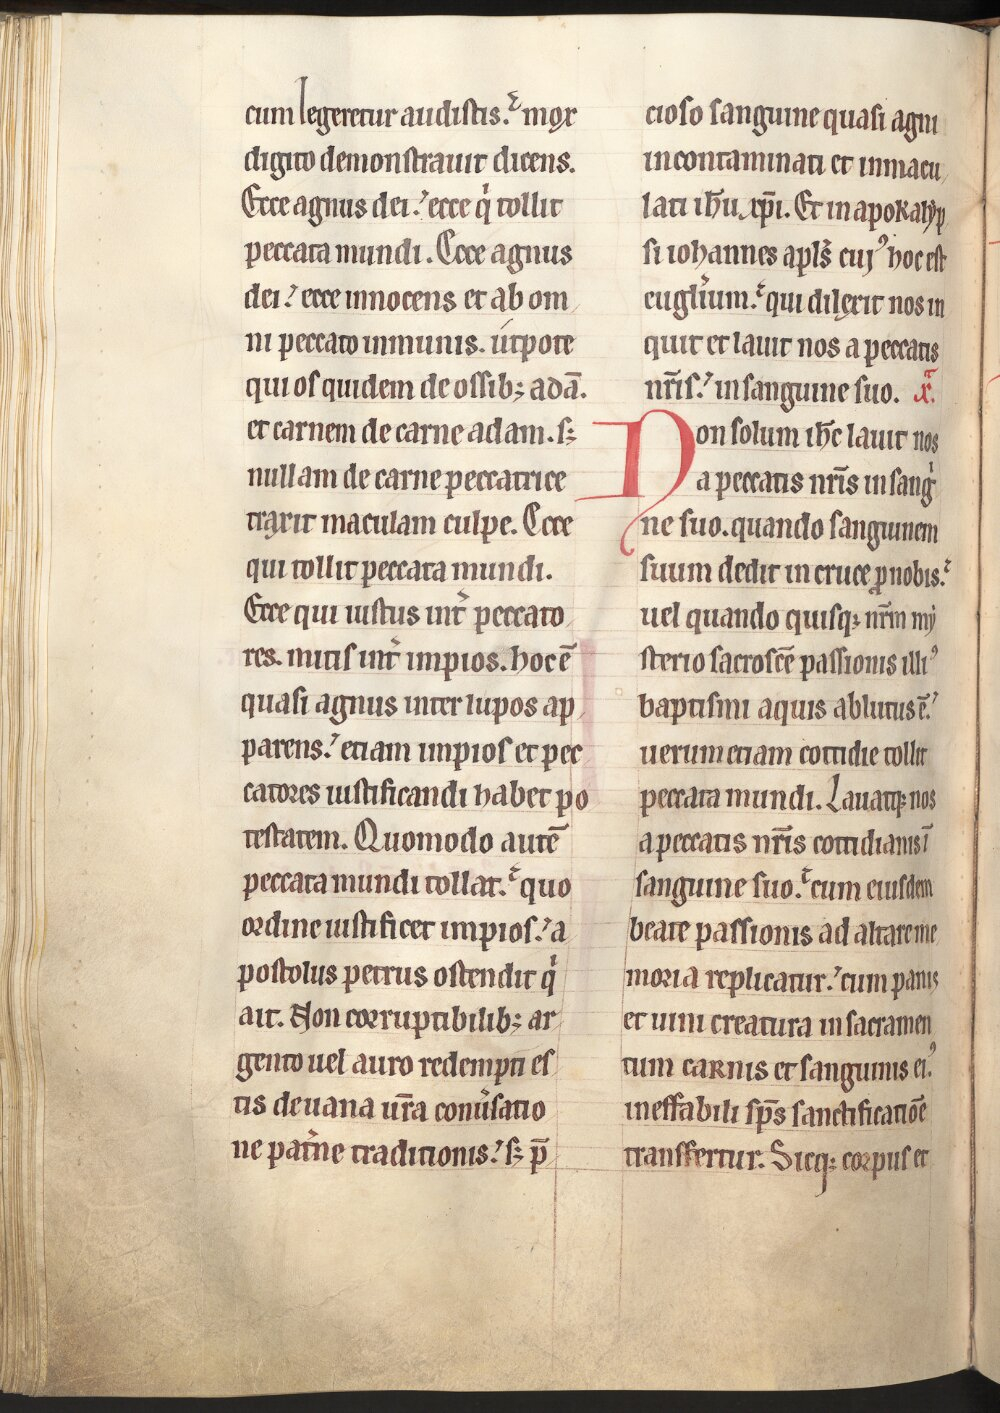 cum legeretur audistis. mox
digito demonstrauit dicens.
Ecce agnus dei. ecce q̇ tollit
peccata mundi. Ecce agnus
dei. ecce innocens et ab om
ni peccato inmunis. útpote
qui os quidem de ossib; adā.
et carnem de carne adam. s;
nullam de carne peccatrice
traxit maculam culpe. Ecce
qui tollit peccata mundi.
Ecce qui iustus int̄ peccato
res. mitis int̄ impios. hoc ē
quasi agnus inter lupos ap
parens. etiam impios et pec
catores iustificandi habet po
testatem. Quomodo autē
peccata mundi tollat. quo
ordine iustificet impios. a
postolus petrus ostendit q̇
ait. Non corruptibilib; ar
gento uel auro redempti es
tis de uana ur̄a conúsatio
ne pat̄ne traditionis. s; p̄
cioso sanguine quasi agni
incontaminati et inmacu
lati ih̄u xp̄i. Et in apokalyp
si iohannes apl̄s cuiꝰ hoc est
eugl̄ium. qui dilexit nos in
quit et lauit nos a peccatis
nr̄is. in sanguine suo. x.
Non solum ih̄c lauit nos
a peccatis nr̄is in sang̍
ne suo. quando sanguinem
suum dedit in cruce ꝑ nobis.
uel quando quisq; nr̄m mÿ
sterio sacrosc̄e passionis illiꝰ
baptismi aquis ablutus ē.
uerum etiam cottidie tollit
peccata mundi. Lauatq; nos
a peccatis nr̄is cottidianis ī
sanguine suo. cum eiusdem
beate passionis ad altare me
moria replicatur. cum panis
et uini creatura in sacramen
tum carnis et sanguinis eiꝰ
ineffabili sp̄s sanctificatiōe
transfertur. Sicq; corpus et